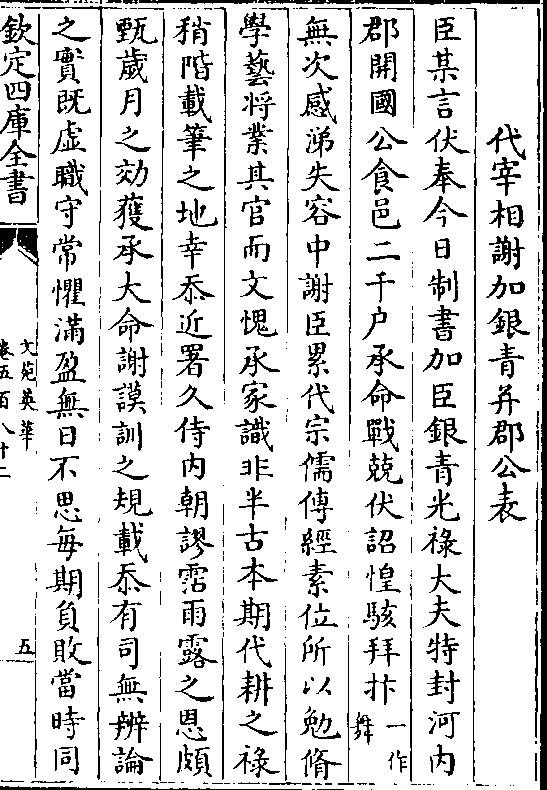 代宰相謝加銀青并郡公表
臣某言伏奉今日制書加臣銀青光祿大夫特封河内
郡開國公食邑二千户承命戰兢伏詔惶駭拜抃一作舞
無次感涕失容中謝臣累代宗儒傳經素位所以勉脩
學藝将業其官而文愧承家識非半古本期代耕之祿
稍階載筆之地幸忝近署久侍内朝謬霑雨露之恩頗
甄歲月之効獲承大命謝謨訓之規載忝有司無辨論
之實既虚職守常懼滿盈無日不思每期負敗當時同
欽定四庫全書
文苑英華
卷五百八十二
五